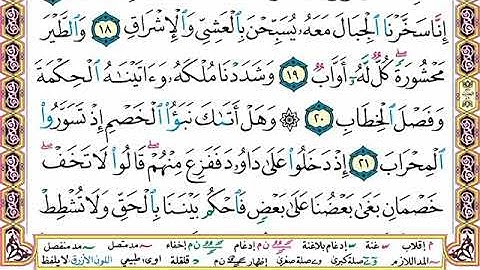 إِنَّا سَخَّرْنَا ٱلْجِبَالَ مَعَهُۥ يُسَبِّحْنَ بِٱلْعَشِيِّ وَٱلْإِشْرَاقِ ١٨ وَٱلطَّيْرَ
مَحْشُورَةً ۖ كُلٌّ لَّهُۥٓ أَوَّابٌ ١٩ وَشَدَدْنَا مُلْكَهُۥ وَءَاتَيْنَٰهُ ٱلْحِكْمَةَ
وَفَصْلَ ٱلْخِطَابِ ٢٠ ۞ وَهَلْ أَتَىٰكَ نَبَؤُا۟ ٱلْخَصْمِ إِذْ تَسَوَّرُوا۟
ٱلْمِحْرَابَ ٢١ إِذْ دَخَلُوا۟ عَلَىٰ دَاوُۥدَ فَفَزِعَ مِنْهُمْ ۖ قَالُوا۟ لَا تَخَفْ ۖ
خَصْمَانِ بَغَىٰ بَعْضُنَا عَلَىٰ بَعْضٍ فَٱحْكُم بَيْنَنَا بِٱلْحَقِّ وَلَا تُشْطِطْ
م إقلاب غنة إدغام بلاغنة ن م إدغام إخفاء مد متصل مد منفصل
المد اللازم صلة كبرى صلة صغرى إظهار ن م قلقلة اوى طبيعي اللون الأزرق لا يلفظ